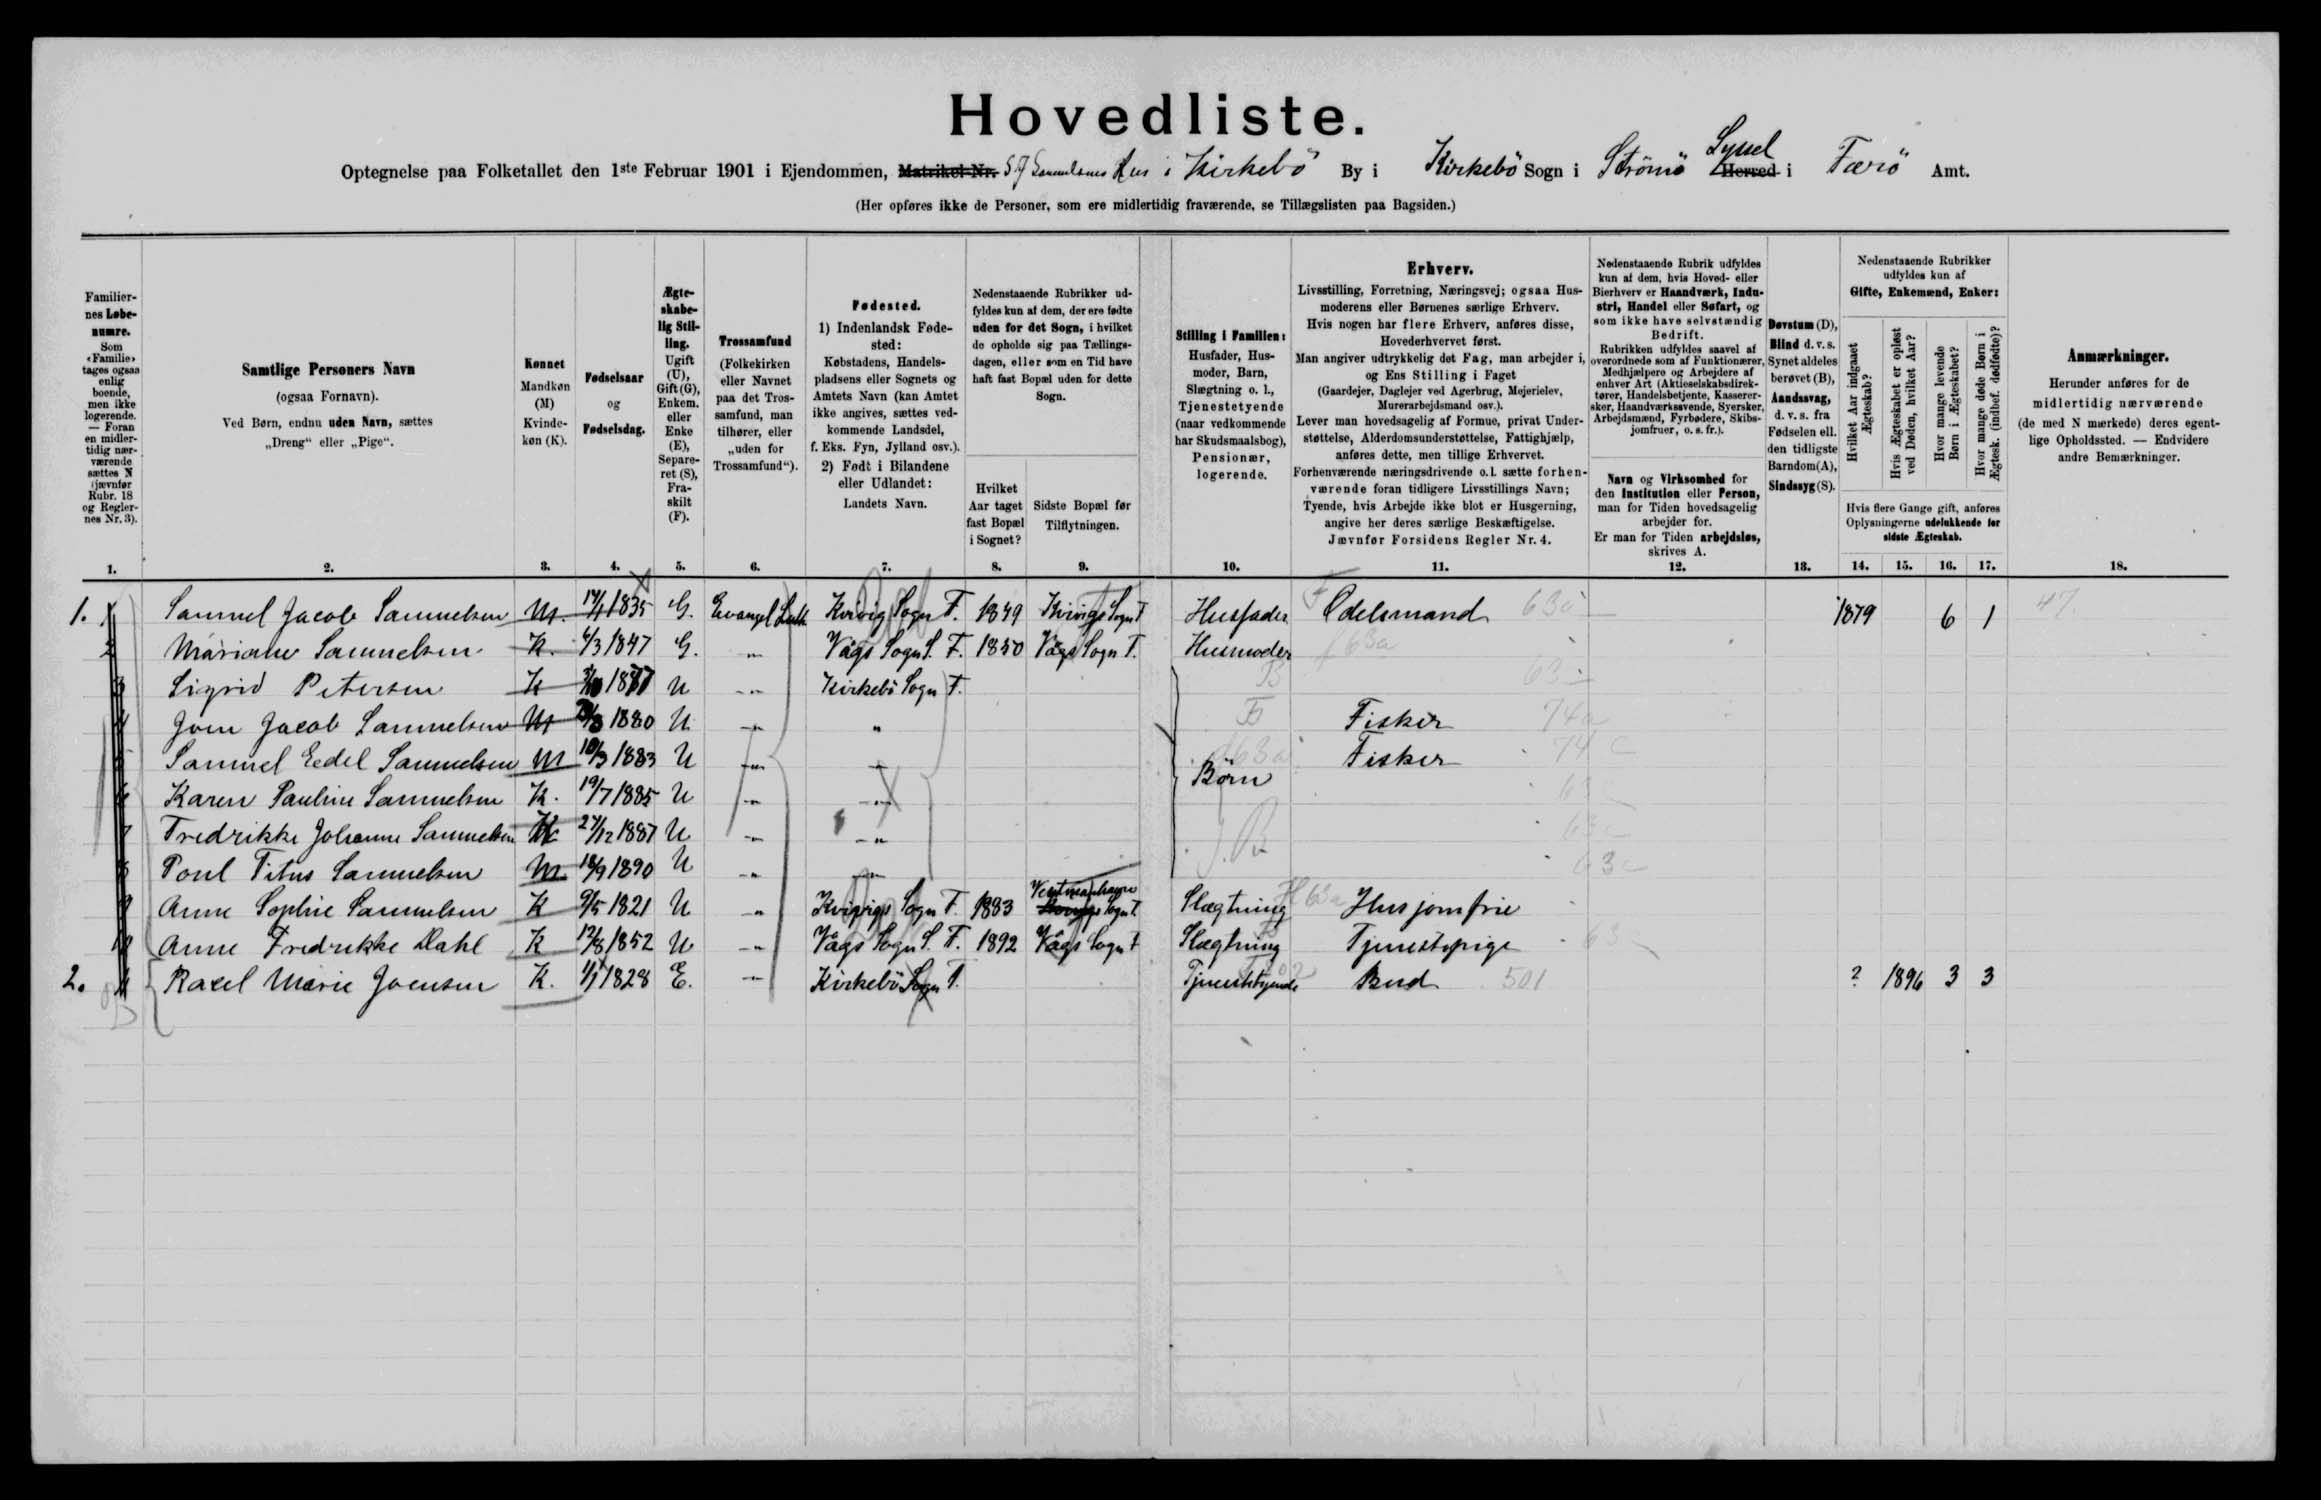 Hovedliste.
Optegnelse paa Folketallet den 1ste Februar 1901 i Ejendommen, Matrikel-Nr. S J Samuelsens Hus i Kirkebö By i Kirkebö Sogn i Strömö Syssel Herred i Færö Amt.
(Her opføres ikke de Personer, som ere midlertidig fraværende, se Tillægslisten paa Bagsiden.)
Familiernes Løbenumre.
Som «Familie» tages ogsaa enlig boende, men ikke logerende. — Foran en midlertidig nærværende sættes N (jævnfør Rubr. 18 og Reglernes Nr. 3).
Samtlige Personers Navn
(ogsaa Fornavn).
Ved Børn, endnu uden Navn, sættes
„Dreng“ eller „Pige“.
Kønnet
Mandkøn (M)
Kvindekøn (K).
Fødselsaar
og
Fødselsdag.
Ægteskabelig Stilling.
Ugift (U), Gift (G), Enkem. eller Enke (E), Separeret (S), Fraskilt (F).
Trossamfund
(Folkekirken eller Navnet paa det Trossamfund, man tilhører, eller „uden for Trossamfund“).
Fødested.
1) Indenlandsk Fødested:
Købstadens, Handelspladsens eller Sognets og Amtets Navn (kan Amtet ikke angives, sættes vedkommende Landsdel, f. Eks. Fyn, Jylland osv.).
2) Født i Bilandene eller Udlandet:
Landets Navn.
Nedenstaaende Rubrikker udfyldes kun af dem, der ere fødte uden for det Sogn, i hvilket de opholde sig paa Tællingsdagen, eller som en Tid have haft fast Bopæl uden for dette Sogn.
Hvilket Aar taget fast Bopæl i Sognet?
Sidste Bopæl før Tilflytningen.
Stilling i Familien:
Husfader, Husmoder, Barn, Slægtning o. l., Tjenestetyende (naar vedkommende har Skudsmaalsbog), Pensionær, logerende.
Erhverv.
Livsstilling, Forretning, Næringsvej; ogsaa Husmoderens eller Børnenes særlige Erhverv.
Hvis nogen har flere Erhverv, anføres disse, Hovederhvervet først.
Man angiver udtrykkelig det Fag, man arbejder i, og Ens Stilling i Faget
(Gaardejer, Daglejer ved Agerbrug, Mejerielev, Murerarbejdsmand osv.).
Lever man hovedsagelig af Formue, privat Understøttelse, Alderdomsunderstøttelse, Fattighjælp, anføres dette, men tillige Erhvervet.
Forhenværende næringsdrivende o.l. sætte forhenværende foran tidligere Livsstillings Navn;
Tyende, hvis Arbejde ikke blot er Husgerning, angive her deres særlige Beskæftigelse.
Jævnfør Forsidens Regler Nr. 4.
Nedenstaaende Rubrik udfyldes kun af dem, hvis Hoved- eller Bierhverv er Haandværk, Industri, Handel eller Søfart, og som ikke have selvstændig Bedrift.
Rubrikken udfyldes saavel af overordnede som af Funktionærer, Medhjælpere og Arbejdere af enhver Art (Aktieselskabsdirektører, Handelsbetjente, Kasserersker, Haandværkssvende, Syersker, Arbejdsmænd, Fyrbødere, Skibsjomfruer, o. s. fr.).
Navn og Virksomhed for den Institution eller Person, man for Tiden hovedsagelig arbejder for.
Er man for Tiden arbejdsløs, skrives A.
Døvstum (D), Blind d. v. s. Synet aldeles berøvet (B), Aandssvag, d. v. s. fra Fødselen ell. den tidligste Barndom (A), Sindssyg (S).
Nedenstaaende Rubrikker udfyldes kun af
Gifte, Enkemænd, Enker:
Hvilket Aar indgaaet Ægteskab?
Hvis Ægteskabet er opløst ved Døden, hvilket Aar?
Hvor mange levende Børn i Ægteskabet?
Hvor mange døde Børn i Ægtesk. (indbef. dødfødte)?
Hvis flere Gange gift, anføres Oplysningerne udelukkende for sidste Ægteskab.
Anmærkninger.
Herunder anføres for de midlertidig nærværende (de med N mærkede) deres egentlige Opholdssted. — Endvidere andre Bemærkninger.
1. 2. 3. 4. 5. 6. 7. 8. 9. 10. 11. 12. 13. 14. 15. 16. 17. 18.
1. 1 Samuel Jacob Samuelsen M. 14/1 1835 G. Evangel Luth Kvivig Sogn F. 1849 Kvivigs Sogn F Husfader F Odelsmand 63a 1879 6 1 47.
2 Mariane Samuelsen K. 4/3 1847 G. -"- Vågs Sogn S. F. 1850 Vågs Sogn F. Husmoder f 63a
3 Sigrid Petersen K 1877 U -"- Kirkebö Sogn F. B
4 Joen Jacob Samuelsen M 1880 U -"- " B Fisker 74a
5 Samuel Eedel Samuelsen M 10/3 1883 U -"- -"- Børn Fisker 74 c
6 Karen Pauline Samuelsen K. 19/7 1885 U -"- -"-
7 Fredrikke Johanne Samuelsen K 27/12 1887 U -"- -"-
8 Poul Titus Samuelsen M 18/9 1890 U -"- -"- 63c
9 Anne Sophie Samuelsen K 9/5 1821 U -"- Kvivigs Sogn F. 1883 Vestmanhavn Sogn F. Slægtning Husjomfrie
10 Anne Fredrikke Dahl K 12/8 1852 U -"- Vågs Sogn S. F. 1892 Vågs Sogn F Slægtning Tjenestepige
2. 11 Raxel Marie Joensen K. 1/1 1828 E. -"- Kirkebö Sogn F. Tjenestetyende Bud 501 ? 1896 3 3